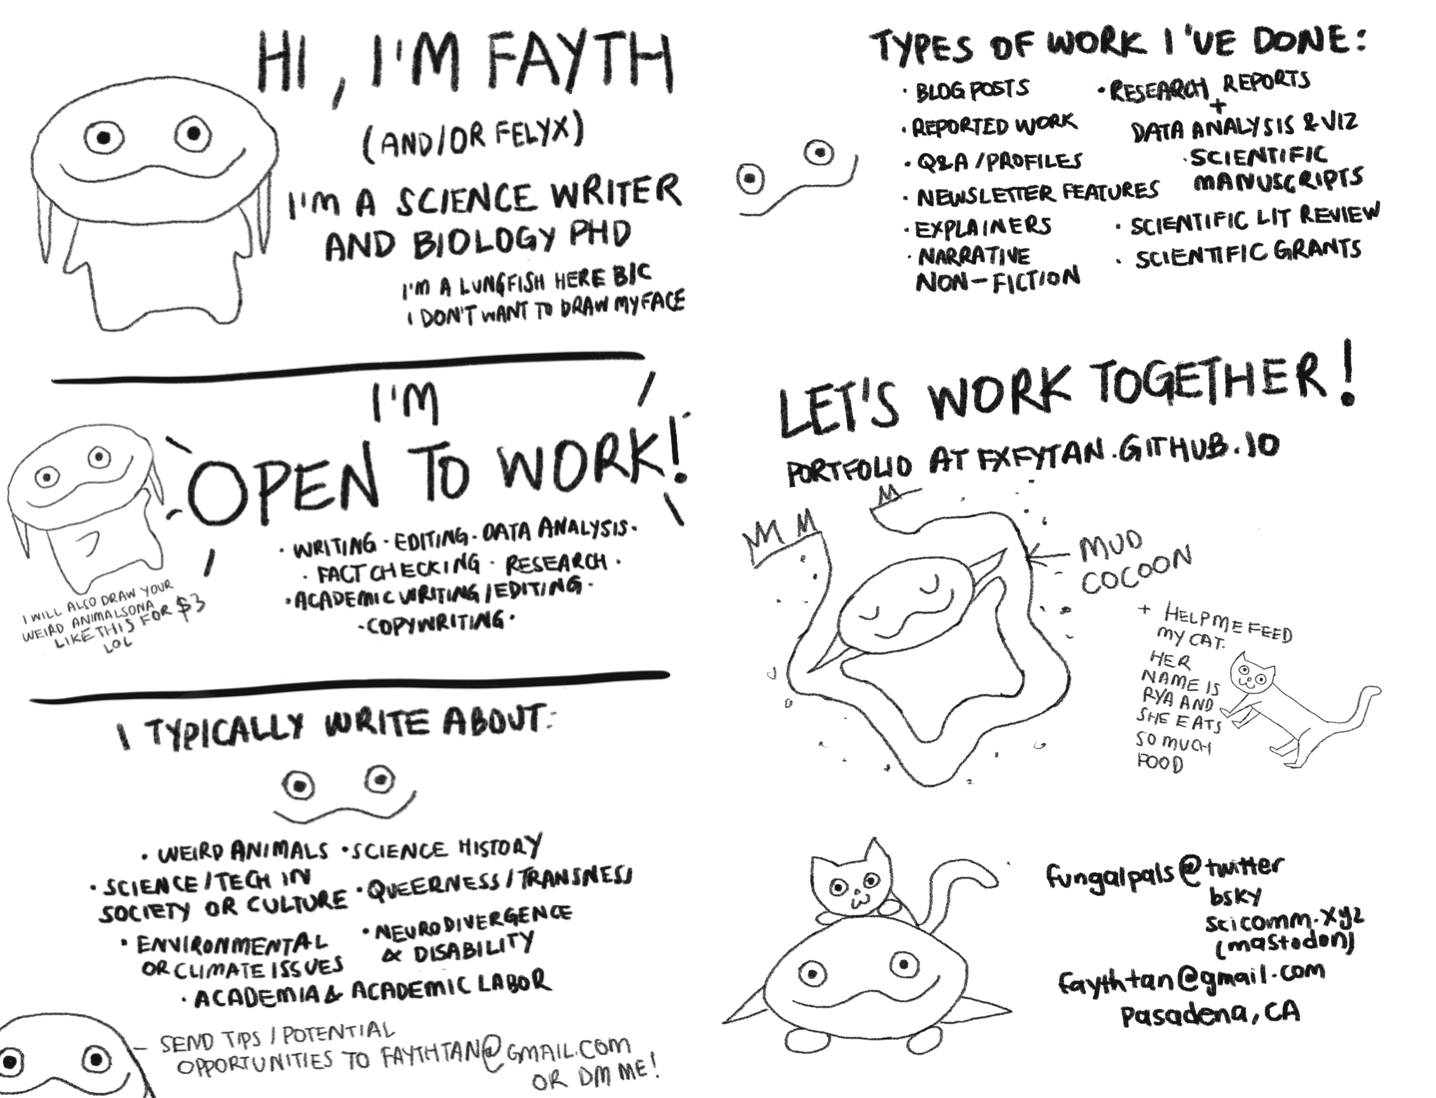 HI, I'M FAYTH
(AND/OR FELYX)
I'M A SCIENCE WRITER
AND BIOLOGY PHD
I'M A LUNGFISH HERE B/C
I DON'T WANT TO DRAW MY FACE
I'M
OPEN TO WORK!
· WRITING · EDITING · DATA ANALYSIS ·
· FACT CHECKING · RESEARCH ·
· ACADEMIC WRITING/EDITING ·
· COPYWRITING ·
I WILL ALSO DRAW YOUR
WEIRD ANIMALSONA
LIKE THIS FOR $3
LOL
I TYPICALLY WRITE ABOUT:
· WEIRD ANIMALS · SCIENCE HISTORY
· SCIENCE/TECH IN
SOCIETY OR CULTURE · QUEERNESS/TRANSNESS
· ENVIRONMENTAL
OR CLIMATE ISSUES
· NEURODIVERGENCE
& DISABILITY
· ACADEMIA & ACADEMIC LABOR
SEND TIPS/POTENTIAL
OPPORTUNITIES TO FAYTHTAN@GMAIL.COM
OR DM ME!
TYPES OF WORK I'VE DONE:
· BLOG POSTS
· REPORTED WORK
· Q&A/PROFILES
· NEWSLETTER FEATURES
· EXPLAINERS
· NARRATIVE
NON-FICTION
· RESEARCH REPORTS
+
DATA ANALYSIS & VIZ
· SCIENTIFIC
MANUSCRIPTS
· SCIENTIFIC LIT REVIEW
· SCIENTIFIC GRANTS
LET'S WORK TOGETHER!
PORTFOLIO AT FXFYTAN.GITHUB.IO
MUD
COCOON
+ HELP ME FEED
MY CAT.
HER
NAME IS
RYA AND
SHE EATS
SO MUCH
FOOD
fungalpals@twitter
bsky
scicomm.xyz
(mastodon)
faythtan@gmail.com
Pasadena, CA